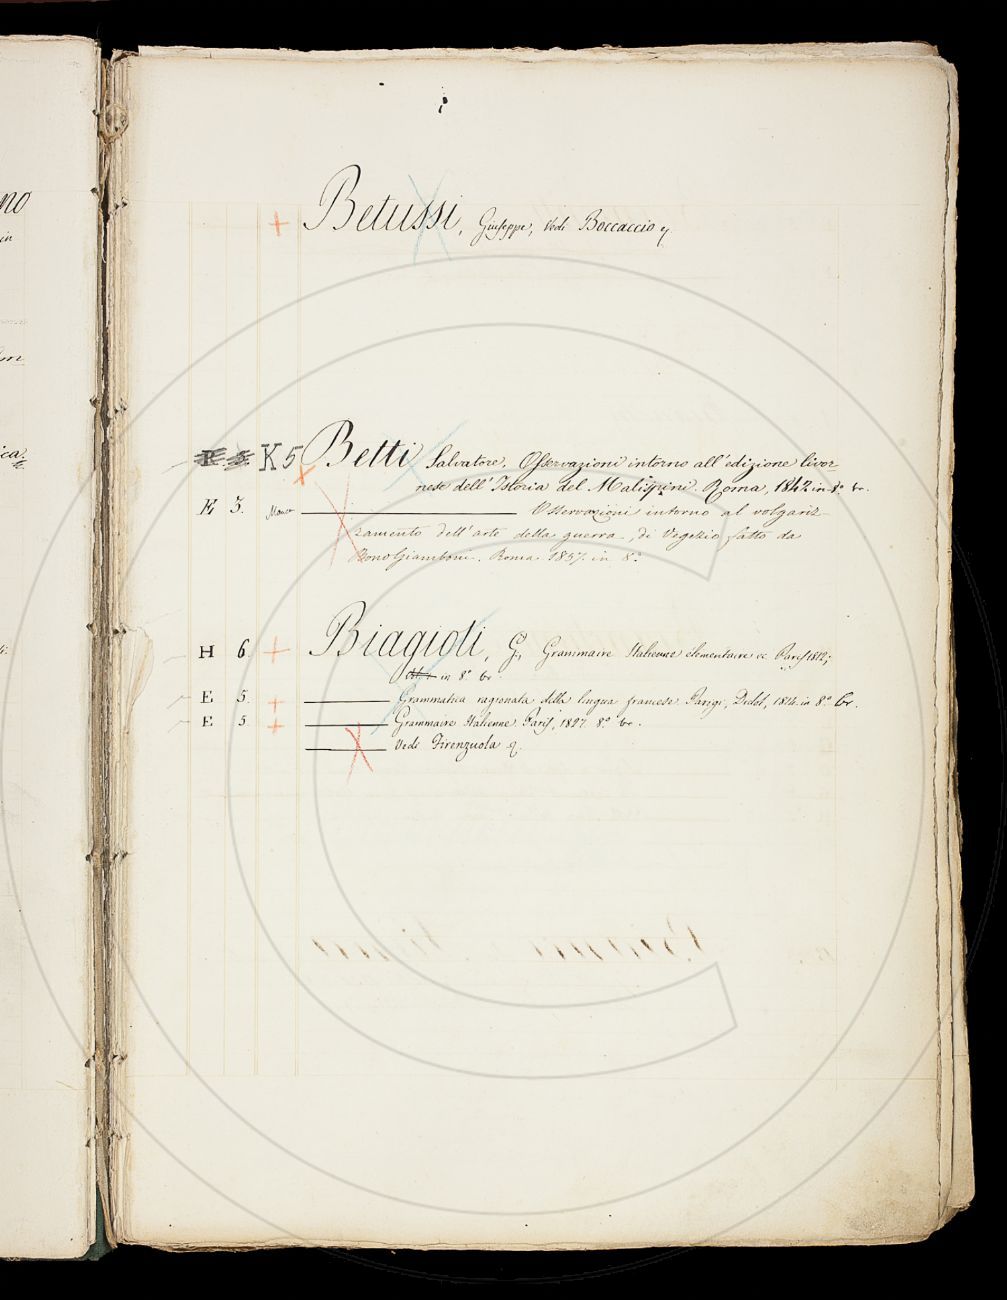 no
in
ica
Betussi, Giuseppe, Vedi Boccaccio
K 5 Betti Salvatore. Osservazioni intorno all'edizione livor-
nese dell'Istoria del Malispini. Roma, 1842 in 8.° br.
E 3. Manca ——— Osservazioni intorno al volgariz-
zamento dell'arte della guerra, di Vegezio fatto da
Bono Giamboni. Roma in 8.°
H 6. + Biagioli, G., Grammaire Italienne élémentaire &c Paris 1812;
in 8.° br
E 5. + ——— Grammatica ragionata della lingua francese. Parigi, Didot, 1814. in 8.° br.
E 5. + ——— Grammaire Italienne. Paris, 8.° br.
——— Vedi Firenzuola